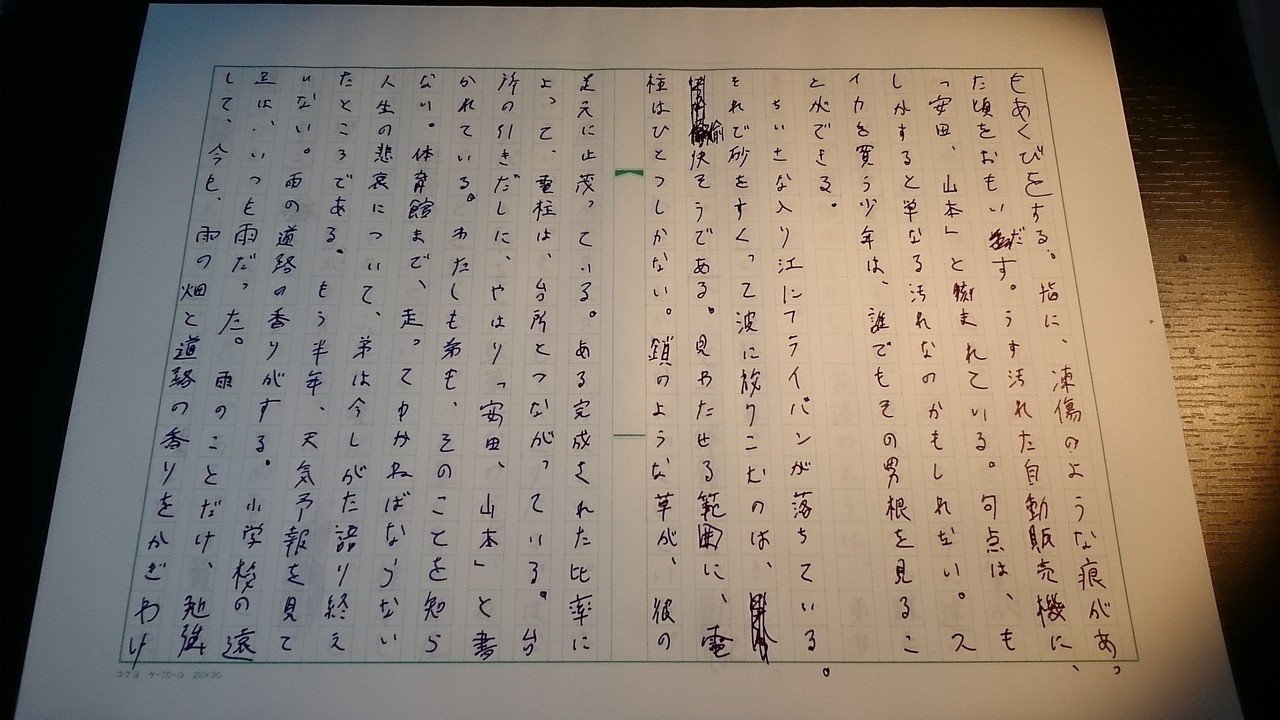 もあくびをする。指に、凍傷のような痕があっ
た頃をおもいだす。うす汚れた自動販売機に、
「安田、山本」とまれている。句点は、も
しかすると単なる汚れなのかもしれない。ス
イカを買う少年は、誰でもその男根を見るこ
とができる。
ちいさな入り江にフライパンが落ちている。
それで砂をすくって波に放りこむのは、
愉快そうである。見わたせる範囲に、電
柱はひとつしかない。鎖のような草が、彼の
足元に茂っている。ある完成された比率に
よって、電柱は、台所とつながっている。台
所の引きだしに、やはり「安田、山本」と書
かれている。わたしも弟も、そのことを知ら
ない。体育館まで、走ってゆかねばならない
人生の悲哀について、弟は今しがた語り終え
たところである。もう半年、天気予報を見て
いない。雨の道路の香りがする。小学校の遠
足は、いつも雨だった。雨のことだけ、勉強
して、今も、雨の畑と道路の香りをかぎわけ
コクヨ ケ-75-G 20×20